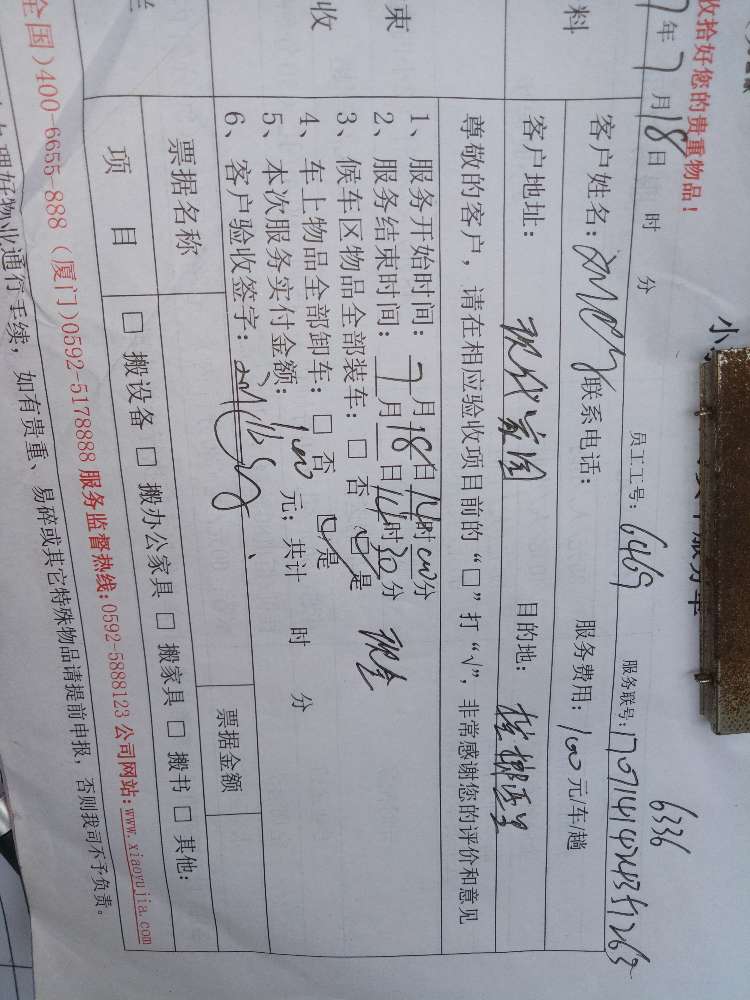 收拾好您的贵重物品！
6336
年7月18日 时 分 员工工号：6469 服务联号：
料 客户姓名： 联系电话： 服务费用：100元/车/趟
客户地址：现代家园 目的地：
尊敬的客户，请在相应验收项目前的“□”打“√”，非常感谢您的评价和意见
束
收
1、服务开始时间：7月18日14时00分
2、服务结束时间： 月 日14时30分
3、候车区物品全部装车：□ 否 ☑ 是 现金
4、车上物品全部卸车：□ 否 ☑ 是
5、本次服务实付金额：100元；共计 时 分
6、客户验收签字：
票据名称 票据金额
项 目 □ 搬设备 □ 搬办公家具 □ 搬家具 □ 搬书 □ 其他:
全国)400-6655-888 (厦门)0592-5178888 服务监督热线:0592-5888123 公司网站:www.xiaoyujia.com
理好物业通行手续，如有贵重、易碎或其它特殊物品请提前申报，否则我司不予负责。